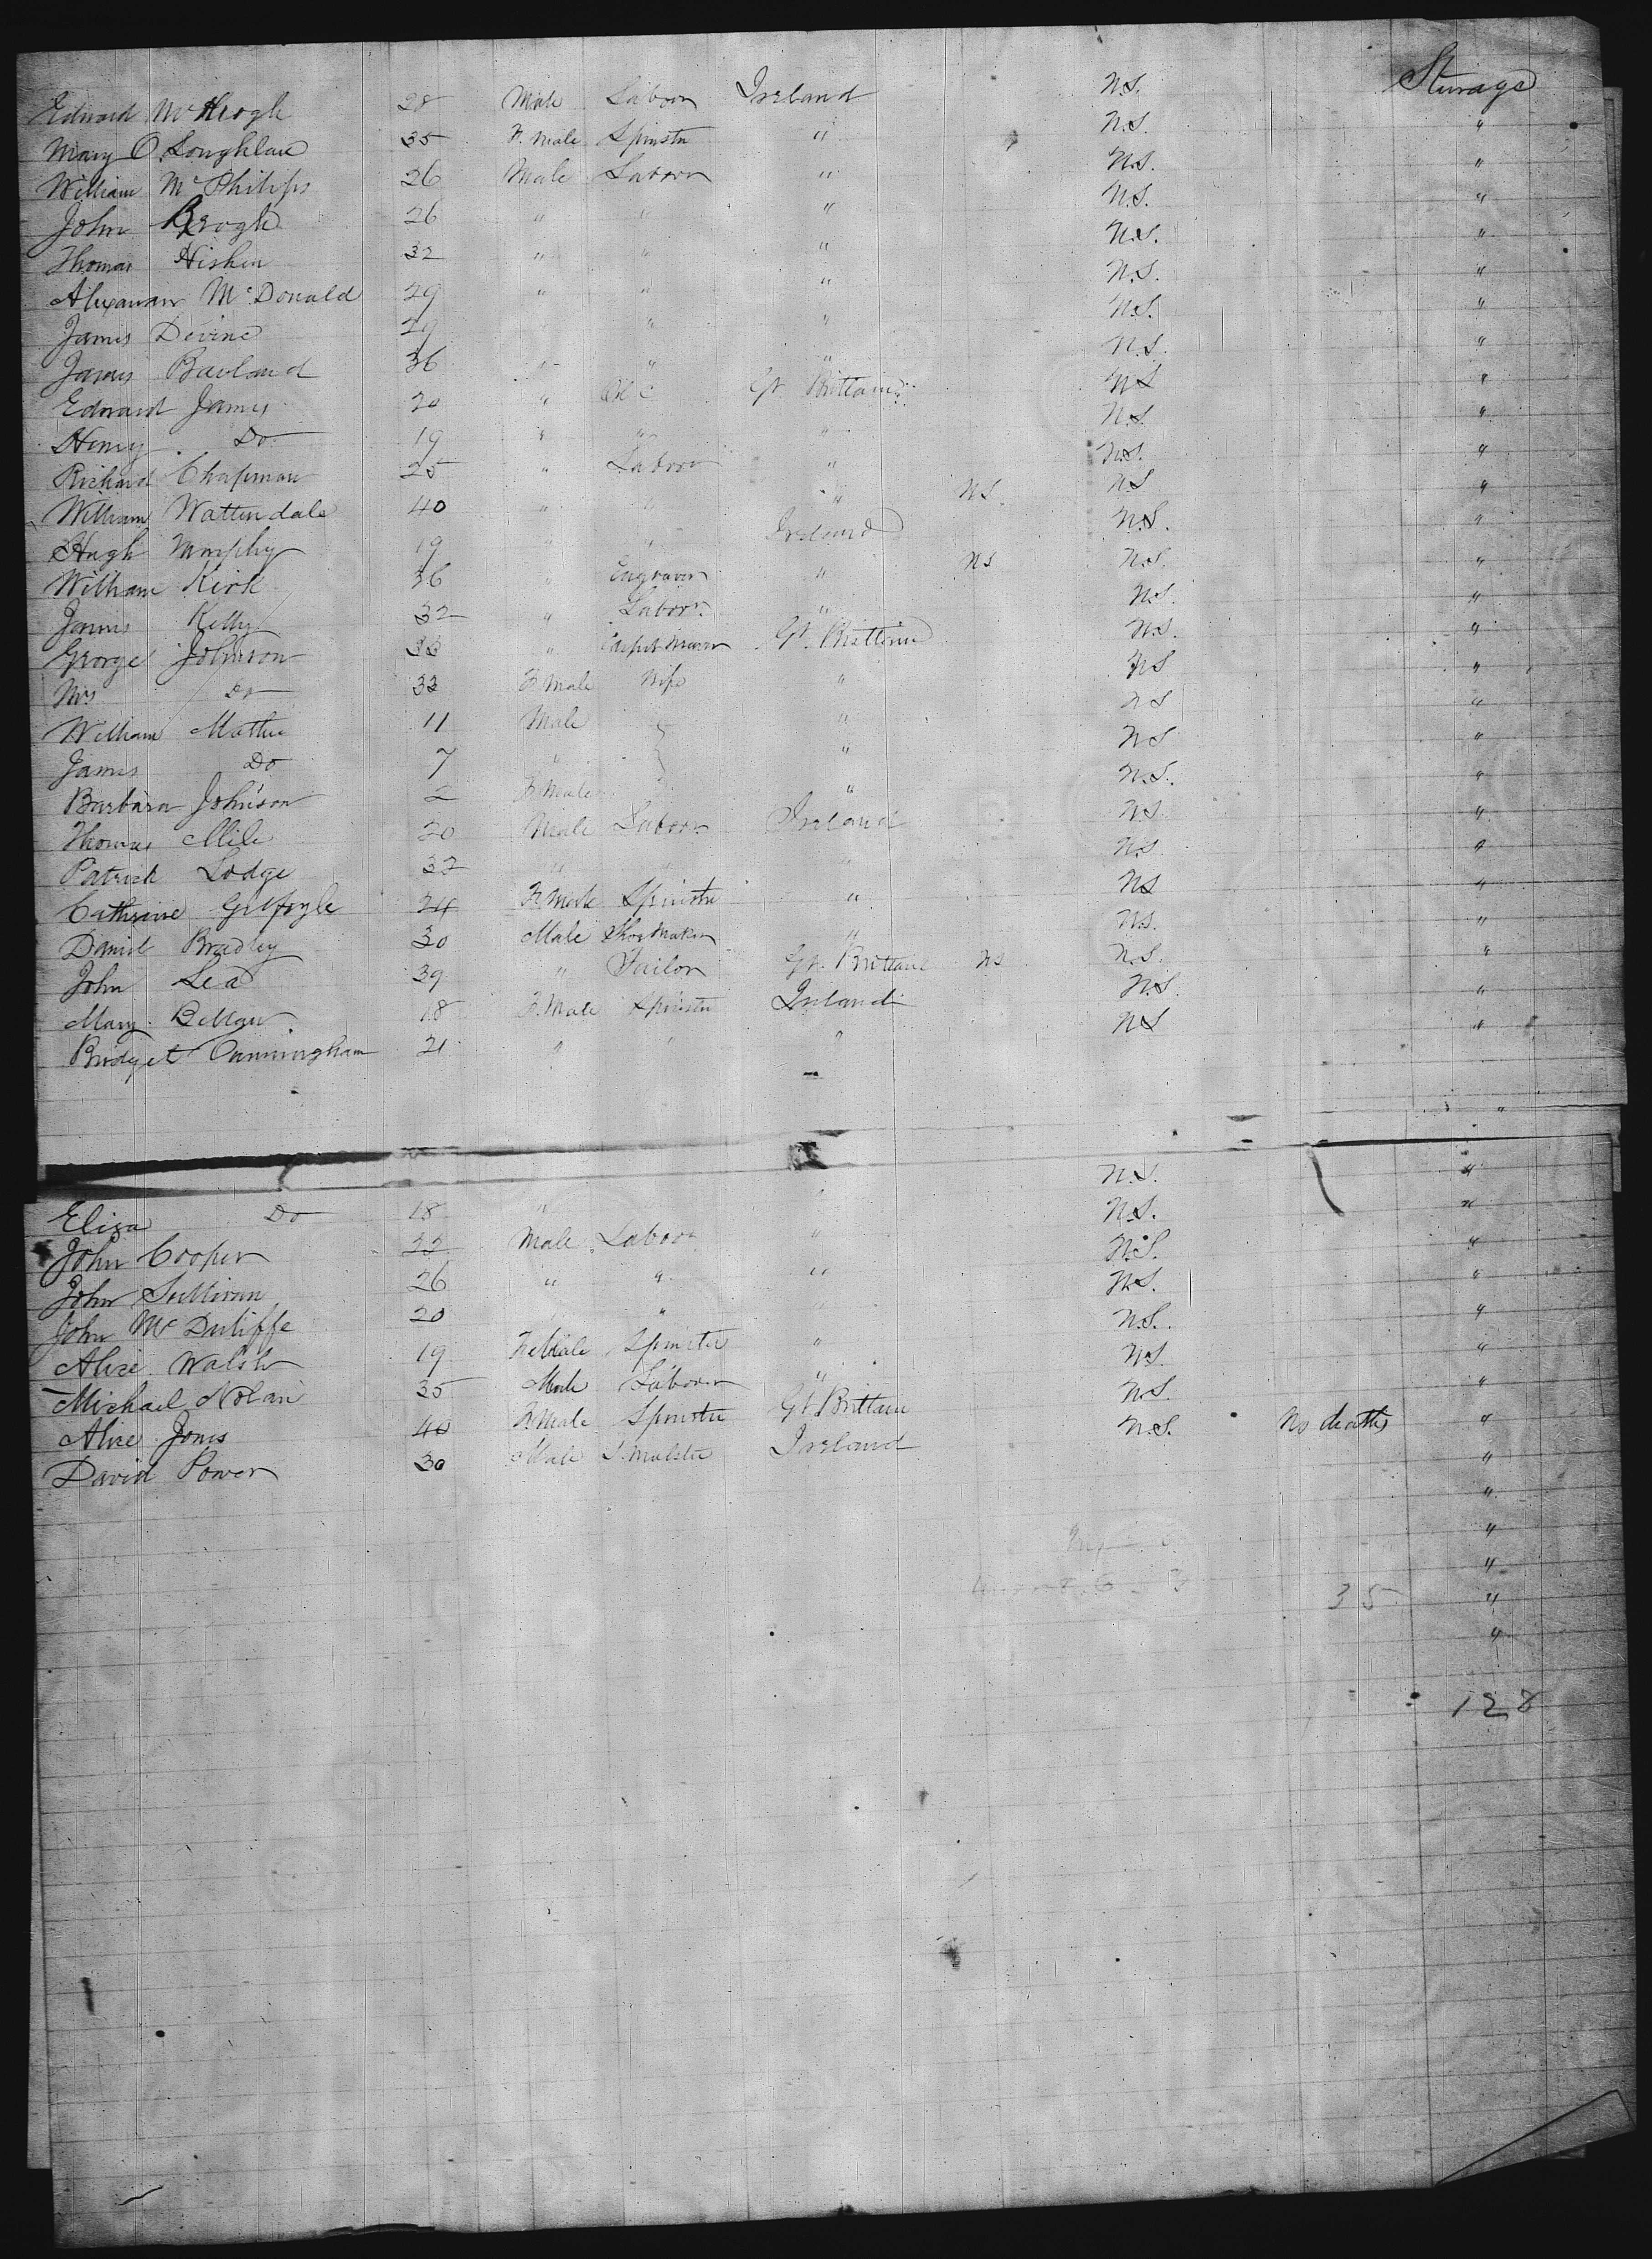 Edward McKeogh 28 Male Laborr Ireland N.S. Sturage
Mary O Loughlan 35 F. male Spinstr " N.S. "
William McPhilips 26 Male Laborr " N.S. "
John Keogh 26 " " " N.S. "
Thomas Hishen 32 " " " N.S. "
Alexander McDonald 29 " " " N.S. "
James Devine 29 " " " N.S. "
James Bavland 36 " " " N.S. "
Edward James 20 " Gt Brittain N.S. "
Henry Do 19 " " " N.S. "
Richard Chapman 25 " Laborr " N.S. "
William Wattendale 40 " " " NS N.S "
Hugh Murphy 19 " " Ireland N.S. "
William Kirk 36 " Engraver " NS N.S. "
James Kelly 32 " Laborr " N.S. "
George Johnson 33 " Carpet Weaver Gt. Brittain N.S. "
Mrs Do 33 F. Male Wife " N.S "
William Mathew 11 Male " N.S "
James Do 7 " " N.S "
Barbara Johnson 2 F. Male " N.S. "
Thomas Mile 20 Male Laborr Ireland N.S. "
Patrick Lodge 32 " " " N.S "
Cathrine Gilfoyle 24 F. Male Spinstr " NS "
Daniel Bradley 30 Male Shoe Maker " N.S. "
John Lea 39 " Tailor Gt. Brittain NS N.S. "
Mary Bellew 18 F. Male Spinstr Ireland N.S. "
Bridget Cunningham 21 " " " N.S "
Eliza Do 18 " " N.S. "
John Cooper 22 Male Laborr " N.S. "
John Sullivan 26 " " " N.S. "
John McDuliffe 20 " " " N.S. "
Alice Walsh 19 Fe Male Spinster " N.S. "
Michael Nolan 35 Male Laborer " N.S. "
Alice Jones 40 F. Male Spinstr Gt Brittain N.S. "
David Power 30 Male Ireland N.S. No deaths "
35
128